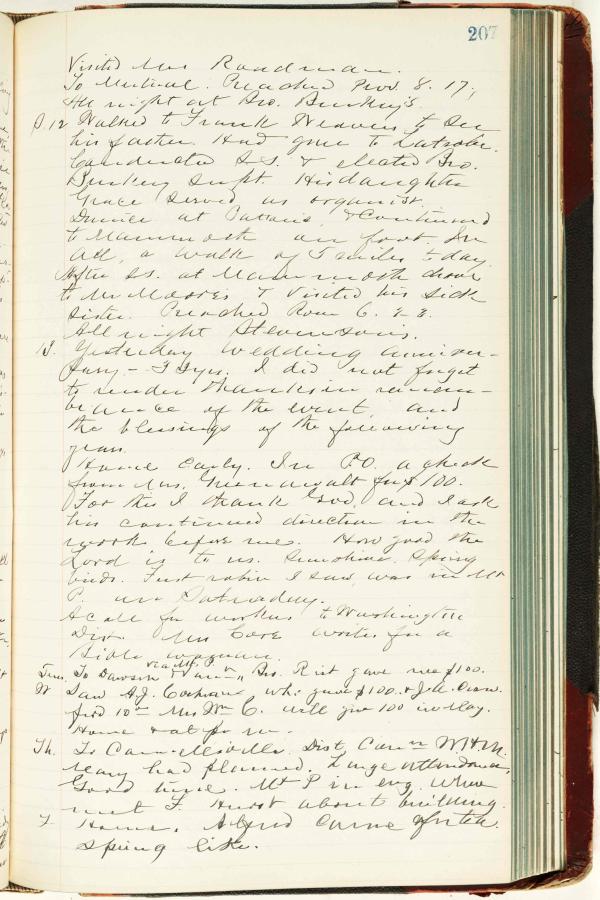 207
Visited Mrs Roadman.
To Mutual. Preached Prov. 8. 17,
All night at Bro. Bunkey's.
S. 12 Walked to Frank Weavers to see
his father. Had gone to Latrobe.
Conducted S.S. & elected Bro.
Bunkey Supt. His daughter
Grace served as organist.
Dinner at & continued
to Mammoth on foot. In
all, a walk of 5 miles today.
After S.S. at Mammoth drove
to Mr Moores & visited his sick
sister. Preached Rom 6. 23.
All night Stevensons.
13. Yesterday wedding anniver-
sary - yrs. I did not forget
to render thanks in remem-
brance of the event, and
the blessings of the following
years.
Home early. In P.O. a check
from Mrs. Greenawalt for $100.
For this I thank God, and I ask
his continued direction in the
work before me. How good the
Lord is to us. Sunshine. Spring
birds. First robin I saw was in Mt
P. on Saturday.
A call for workers to Washington
Dist. Mrs writes for a
Bible woman.
via Mt. P.
Tues. To Dawson Bro. Rist gave me $100.
W Saw A.J. Cochran who gave $100. & J.A.
10 Mrs Wm C. will give 100 in May.
Home
Th. To Connellsville. Dist. Con
Leary had planned. Large attendance,
Good time. Mt P in evg. where
met F. Hurst about building.
F Home. Alfred came after tea.
Spring like.